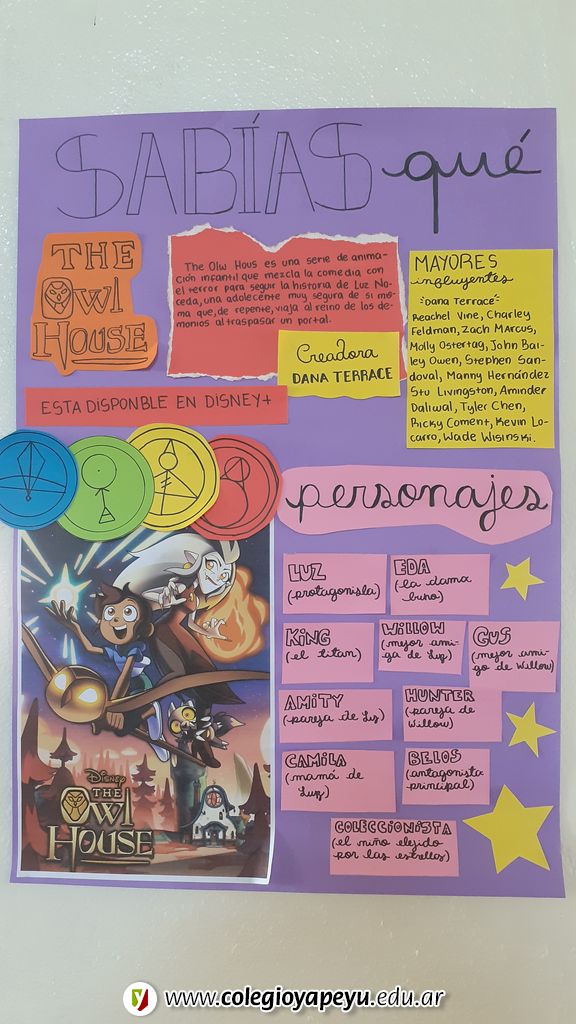 SABÍAS qué
THE
OWL
HOUSE
The Olw Hous es una serie de anima-
ción infantil que mezcla la comedia con
el terror para seguir la historia de Luz No-
ceda, una adolecente muy segura de si mis-
ma que, de repente, viaja al reino de los de-
monios al traspasar un portal.
Creadora
DANA TERRACE
MAYORES
incluyentes
"Dana Terrace"
Reachel Vine, Charley
Feldman, Zach Marcus,
Molly Ostertag, John Bai-
ley Owen, Stephen San-
doval, Manny Hernández
Stu Livingston, Aminder
Daliwal, Tyler Chen,
Ricky Coment, Kevin Lo-
carro, Wade Wisinski.
ESTA DISPONBLE EN DISNEY+
personajes
LUZ
(protagonista)
EDA
(la dama
buno)
KING
(el titan)
WILLOW
(mejor ami-
ga de Luz)
GUS
(mejor ami-
go de Willow)
AMITY
(pareja de Luz)
HUNTER
(pareja de
Willow)
CAMILA
(mamá de
Luz)
BELOS
(antagonista
principal)
COLECCIONISTA
(el niño elejido
por las estrellas)
Disney
THE
OWL
HOUSE
www.colegioyapeyu.edu.ar